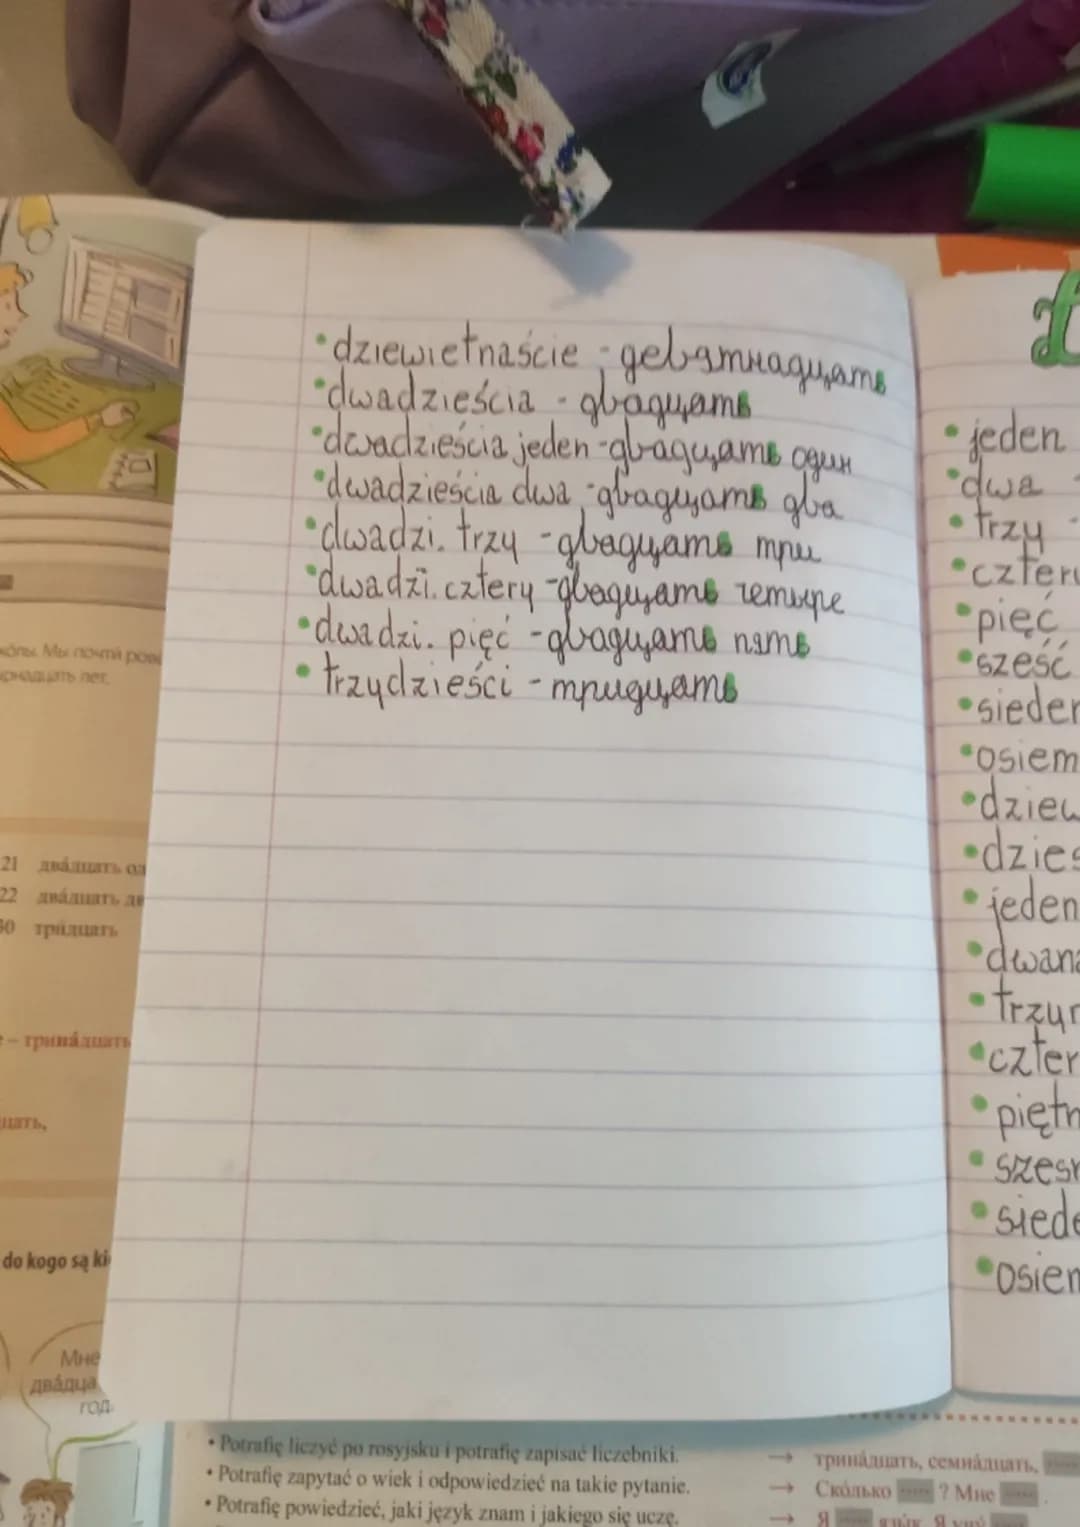 •dziewiętnaście - девятнадцать
•dwadzieścia - двадцать
•dwadzieścia jeden - двадцать один
•dwadzieścia dwa - двадцать два
•dwadzi. trzy - двадцать три
•dwadzi. cztery - двадцать четыре
•dwadzi. pięć - двадцать пять
•trzydzieści - тридцать
•jeden
•dwa -
•trzy -
•cztery
•pięć
•sześć
•siedem
•osiem
•dziew
•dzies
•jeden
•dwana
•trzyn
•czter
•piętn
•szesn
•siede
•osiem
Мы почти
лет.
21 двáдцать од
22 двáдцать дв
30 трúдцать
– тринáдцать
цать,
do kogo są ki
Мне
двáдца
год.
• Potrafię liczyć po rosyjsku i potrafię zapisać liczebniki.
→ тринáдцать, семнáдцать,
• Potrafię zapytać o wiek i odpowiedzieć na takie pytanie.
→ Скóлько ? Мне .
• Potrafię powiedzieć, jaki język znam i jakiego się uczę.
→ Я язы́к. Я учý